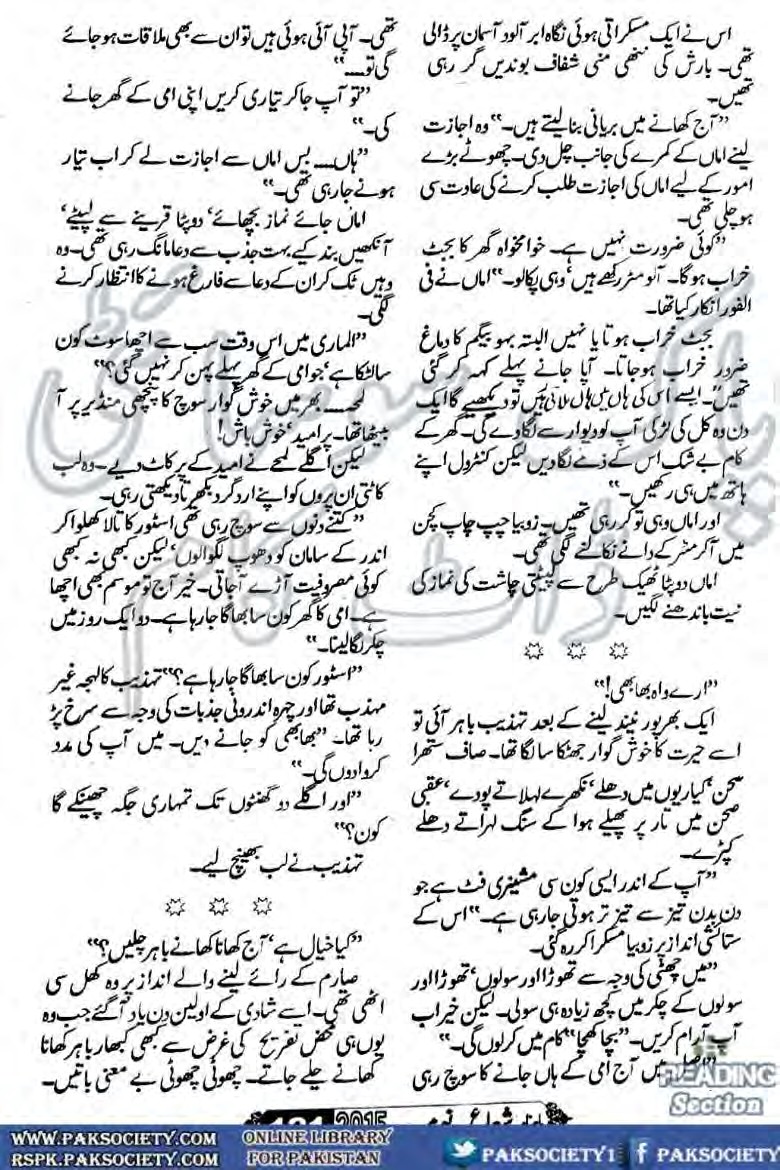 اس نے ایک مسکراتی ہوئی نگاہ ابر آلود آسمان پر ڈالی
تھی۔ بارش کی ننھی منی شفاف بوندیں گر رہی
تھیں۔
”آج کھانے میں بریانی بنا لیتے ہیں۔“ وہ اجازت
لینے اماں کے کمرے کی جانب چل دی۔ چھوٹے بڑے
امور کے لیے اماں کی اجازت طلب کرنے کی عادت سی
ہو چلی تھی۔
”کوئی ضرورت نہیں ہے۔ خوامخواہ گھر کا بجٹ
خراب ہو گا۔ آلو مٹر رکھے ہیں‘ وہی پکالو۔“ اماں نے فی
الفور انکار کیا تھا۔
بجٹ خراب ہوتا یا نہیں البتہ بہو بیگم کا دماغ
ضرور خراب ہو جاتا۔ آپا جانے پہلے کہہ کر گئی
تھیں۔ ”ایسے اس کی ہاں میں ہاں ملاتی رہیں تو دیکھیے گا ایک
دن وہ کل کی لڑکی آپ کو دیوار سے لگا دے گی۔ گھر کے
کام بے شک اس کے ذمے لگا دیں لیکن کنٹرول اپنے
ہاتھ میں ہی رکھیں۔“
اور اماں وہی تو کر رہی تھیں۔ زوبیا چپ چاپ کچن
میں آ کر مٹر کے دانے نکالنے لگی تھی۔
اماں دوپٹا ٹھیک طرح سے لپیٹتی چاشت کی نماز کی
نیت باندھنے لگیں۔
☼ ☼ ☼
”ارے واہ بھابھی!“
ایک بھرپور نیند لینے کے بعد تہذیب باہر آئی تو
اسے حیرت کا خوش گوار جھٹکا سا لگا تھا۔ صاف ستھرا
صحن‘ کیاریوں میں دھلے‘ نکھرے لہلاتے پودے‘ عقبی
صحن میں تار پر پھیلے ہوا کے سنگ لہراتے دھلے
کپڑے۔
”آپ کے اندر ایسی کون سی مشینری فٹ ہے جو
دن بدن تیز سے تیز تر ہوتی جا رہی ہے۔“ اس کے
ستائشی انداز پر زوبیا مسکرا کر رہ گئی۔
”میں چھٹی کی وجہ سے تھوڑا اور سولوں‘ تھوڑا اور
سولوں کے چکر میں کچھ زیادہ ہی سولی۔ لیکن خیر اب
آپ آرام کریں۔ ”بچا کھچا“ کام میں کر لوں گی۔“
میں آج امی کے ہاں جانے کا سوچ رہی
تھی۔ آپی آئی ہوئی ہیں تو ان سے بھی ملاقات ہو جائے
گی تو۔۔۔۔“
”تو آپ جا کر تیاری کریں اپنی امی کے گھر جانے
کی۔“
”ہاں۔۔۔۔ بس اماں سے اجازت لے کر اب تیار
ہونے جا رہی تھی۔“
اماں جائے نماز بچھائے‘ دوپٹا قرینے سے لپیٹے‘
آنکھیں بند کیے بہت جذب سے دعا مانگ رہی تھی۔ وہ
وہیں ٹک کر ان کے دعا سے فارغ ہونے کا انتظار کرنے
لگی۔
”الماری میں اس وقت سب سے اچھا سوٹ کون
سا لٹکا ہے‘ جو امی کے گھر پہلے پہن کر نہیں گئی؟“
لمحہ۔۔۔۔ بھر میں خوش گوار سوچ کا پنچھی منڈیر پر آ
بیٹھا تھا۔ پر امید‘ خوش باش!
لیکن اگلے لمحے نے امید کے پر کاٹ دیے۔ وہ لب
کاٹتی ان پروں کو اپنے ارد گرد بکھرتا دیکھتی رہی۔
”کتنے دنوں سے سوچ رہی تھی اسٹور کا تالا کھلوا کر
اندر کے سامان کو دھوپ لگوالوں‘ لیکن کبھی نہ کبھی
کوئی مصروفیت آڑے آ جاتی۔ خیر آج تو موسم بھی اچھا
ہے۔ امی کا گھر کون سا بھاگا جا رہا ہے۔ دو ایک روز میں
چکر لگا لینا۔“
”اسٹور کون سا بھاگا جا رہا ہے؟“ تہذیب کا لہجہ غیر
مہذب تھا اور چہرہ اندرونی جذبات کی وجہ سے سرخ پڑ
رہا تھا۔ ”بھابھی کو جانے دیں۔ میں آپ کی مدد
کروا دوں گی۔“
”اور اگلے دو گھنٹوں تک تمہاری جگہ چھینکے گا
کون؟“
تہذیب نے لب بھینچ لیے۔
☼ ☼ ☼
”کیا خیال ہے‘ آج کھانا کھانے باہر چلیں؟“
صارم کے رائے لینے والے انداز پر وہ کھل سی
اٹھی تھی۔ اسے شادی کے اولین دن یاد آ گئے جب وہ
یوں ہی محض تفریح کی غرض سے کبھی کبھار باہر کھانا
کھانے چلے جاتے۔ چھوٹی چھوٹی بے معنی باتیں۔
READING
Section
2015
WWW.PAKSOCIETY.COM
RSPK.PAKSOCIETY.COM
ONLINE LIBRARY
FOR PAKISTAN
PAKSOCIETY1
PAKSOCIETY